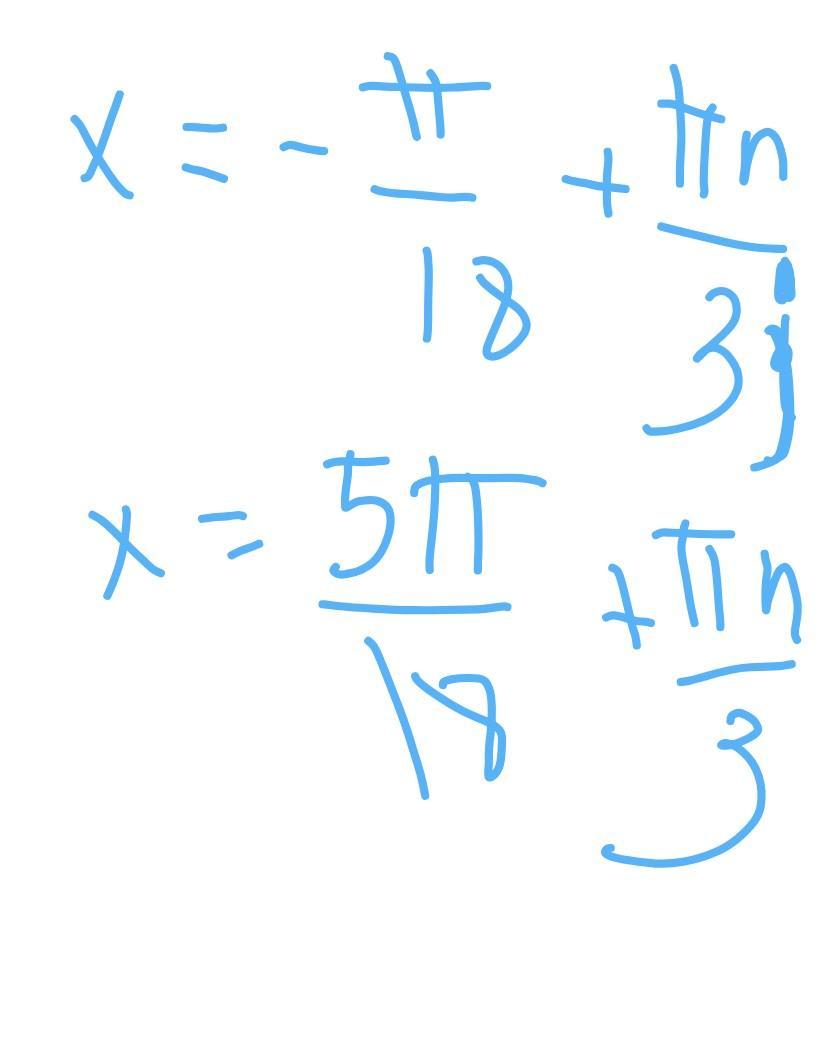 x = -π/18 + πn/3;
x = 5π/18 + πn/3